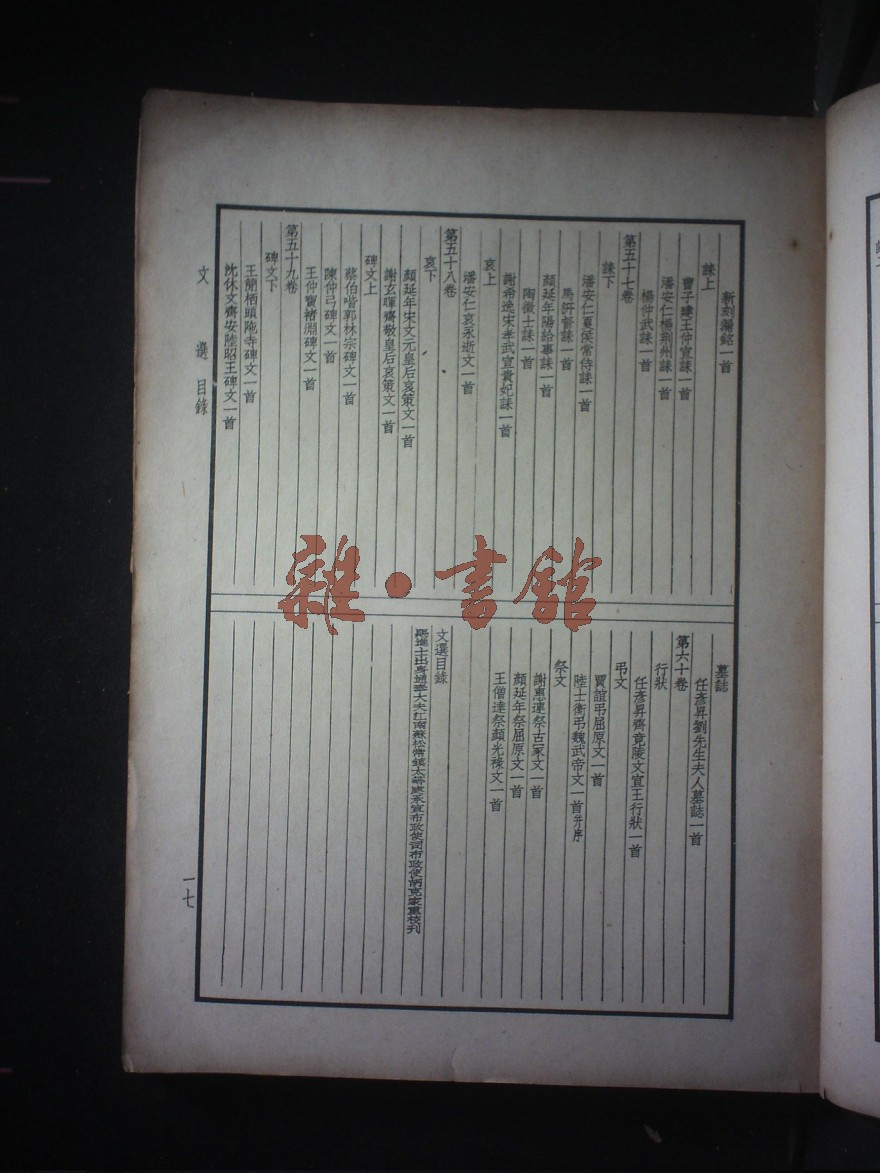 新刻漏銘一首
誄上
曹子建王仲宣誄一首
潘安仁楊荊州誄一首
楊仲武誄一首
第五十七卷
誄下
潘安仁夏侯常侍誄一首
馬汧督誄一首
顏延年陽給事誄一首
陶徵士誄一首
謝希逸宋孝武宣貴妃誄一首
哀上
潘安仁哀永逝文一首
第五十八卷
哀下
顏延年宋文元皇后哀策文一首
謝玄暉齊敬皇后哀策文一首
碑文上
蔡伯喈郭林宗碑文一首
陳仲弓碑文一首
王仲寶褚淵碑文一首
第五十九卷
碑文下
王簡栖頭陁寺碑文一首
沈休文齊安陸昭王碑文一首
墓誌
任彥昇劉先生夫人墓誌一首
第六十卷
行狀
任彥昇齊竟陵文宣王行狀一首
弔文
賈誼弔屈原文一首
陸士衡弔魏武帝文一首并序
祭文
謝惠連祭古冢文一首
顏延年祭屈原文一首
王僧達祭顏光祿文一首
文選目錄
賜進士出身通奉大夫江南蘇松常鎮太等處承宣布政使司布政使胡克家重校刊
文選 目錄
一七
雜·書館